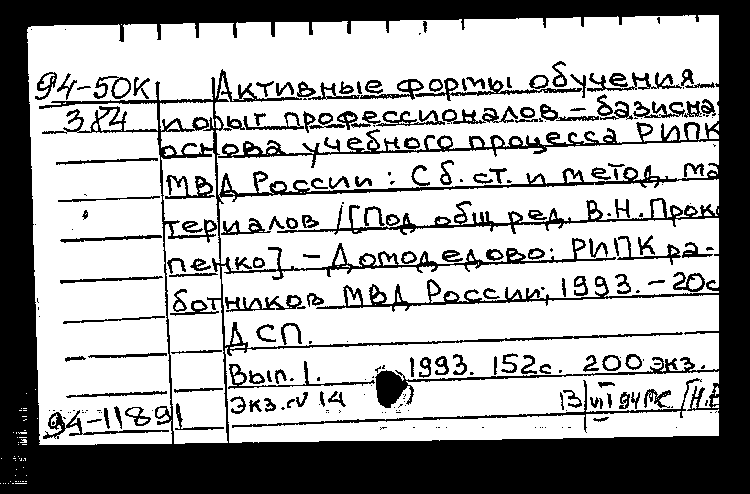 94-50К Активные формы обучения
384 и опыт профессионалов – базисна
основа учебного процесса РИПК
МВД России : Сб. ст. и метод. ма
териалов / [Под общ ред. В.Н. Прок
пенко]. – Домодедово: РИПК ра-
ботников МВД России, 1993. – 20с
ДСП.
Вып. 1. 1993. 152с. 200 экз.
Экз. № 14
94-11891